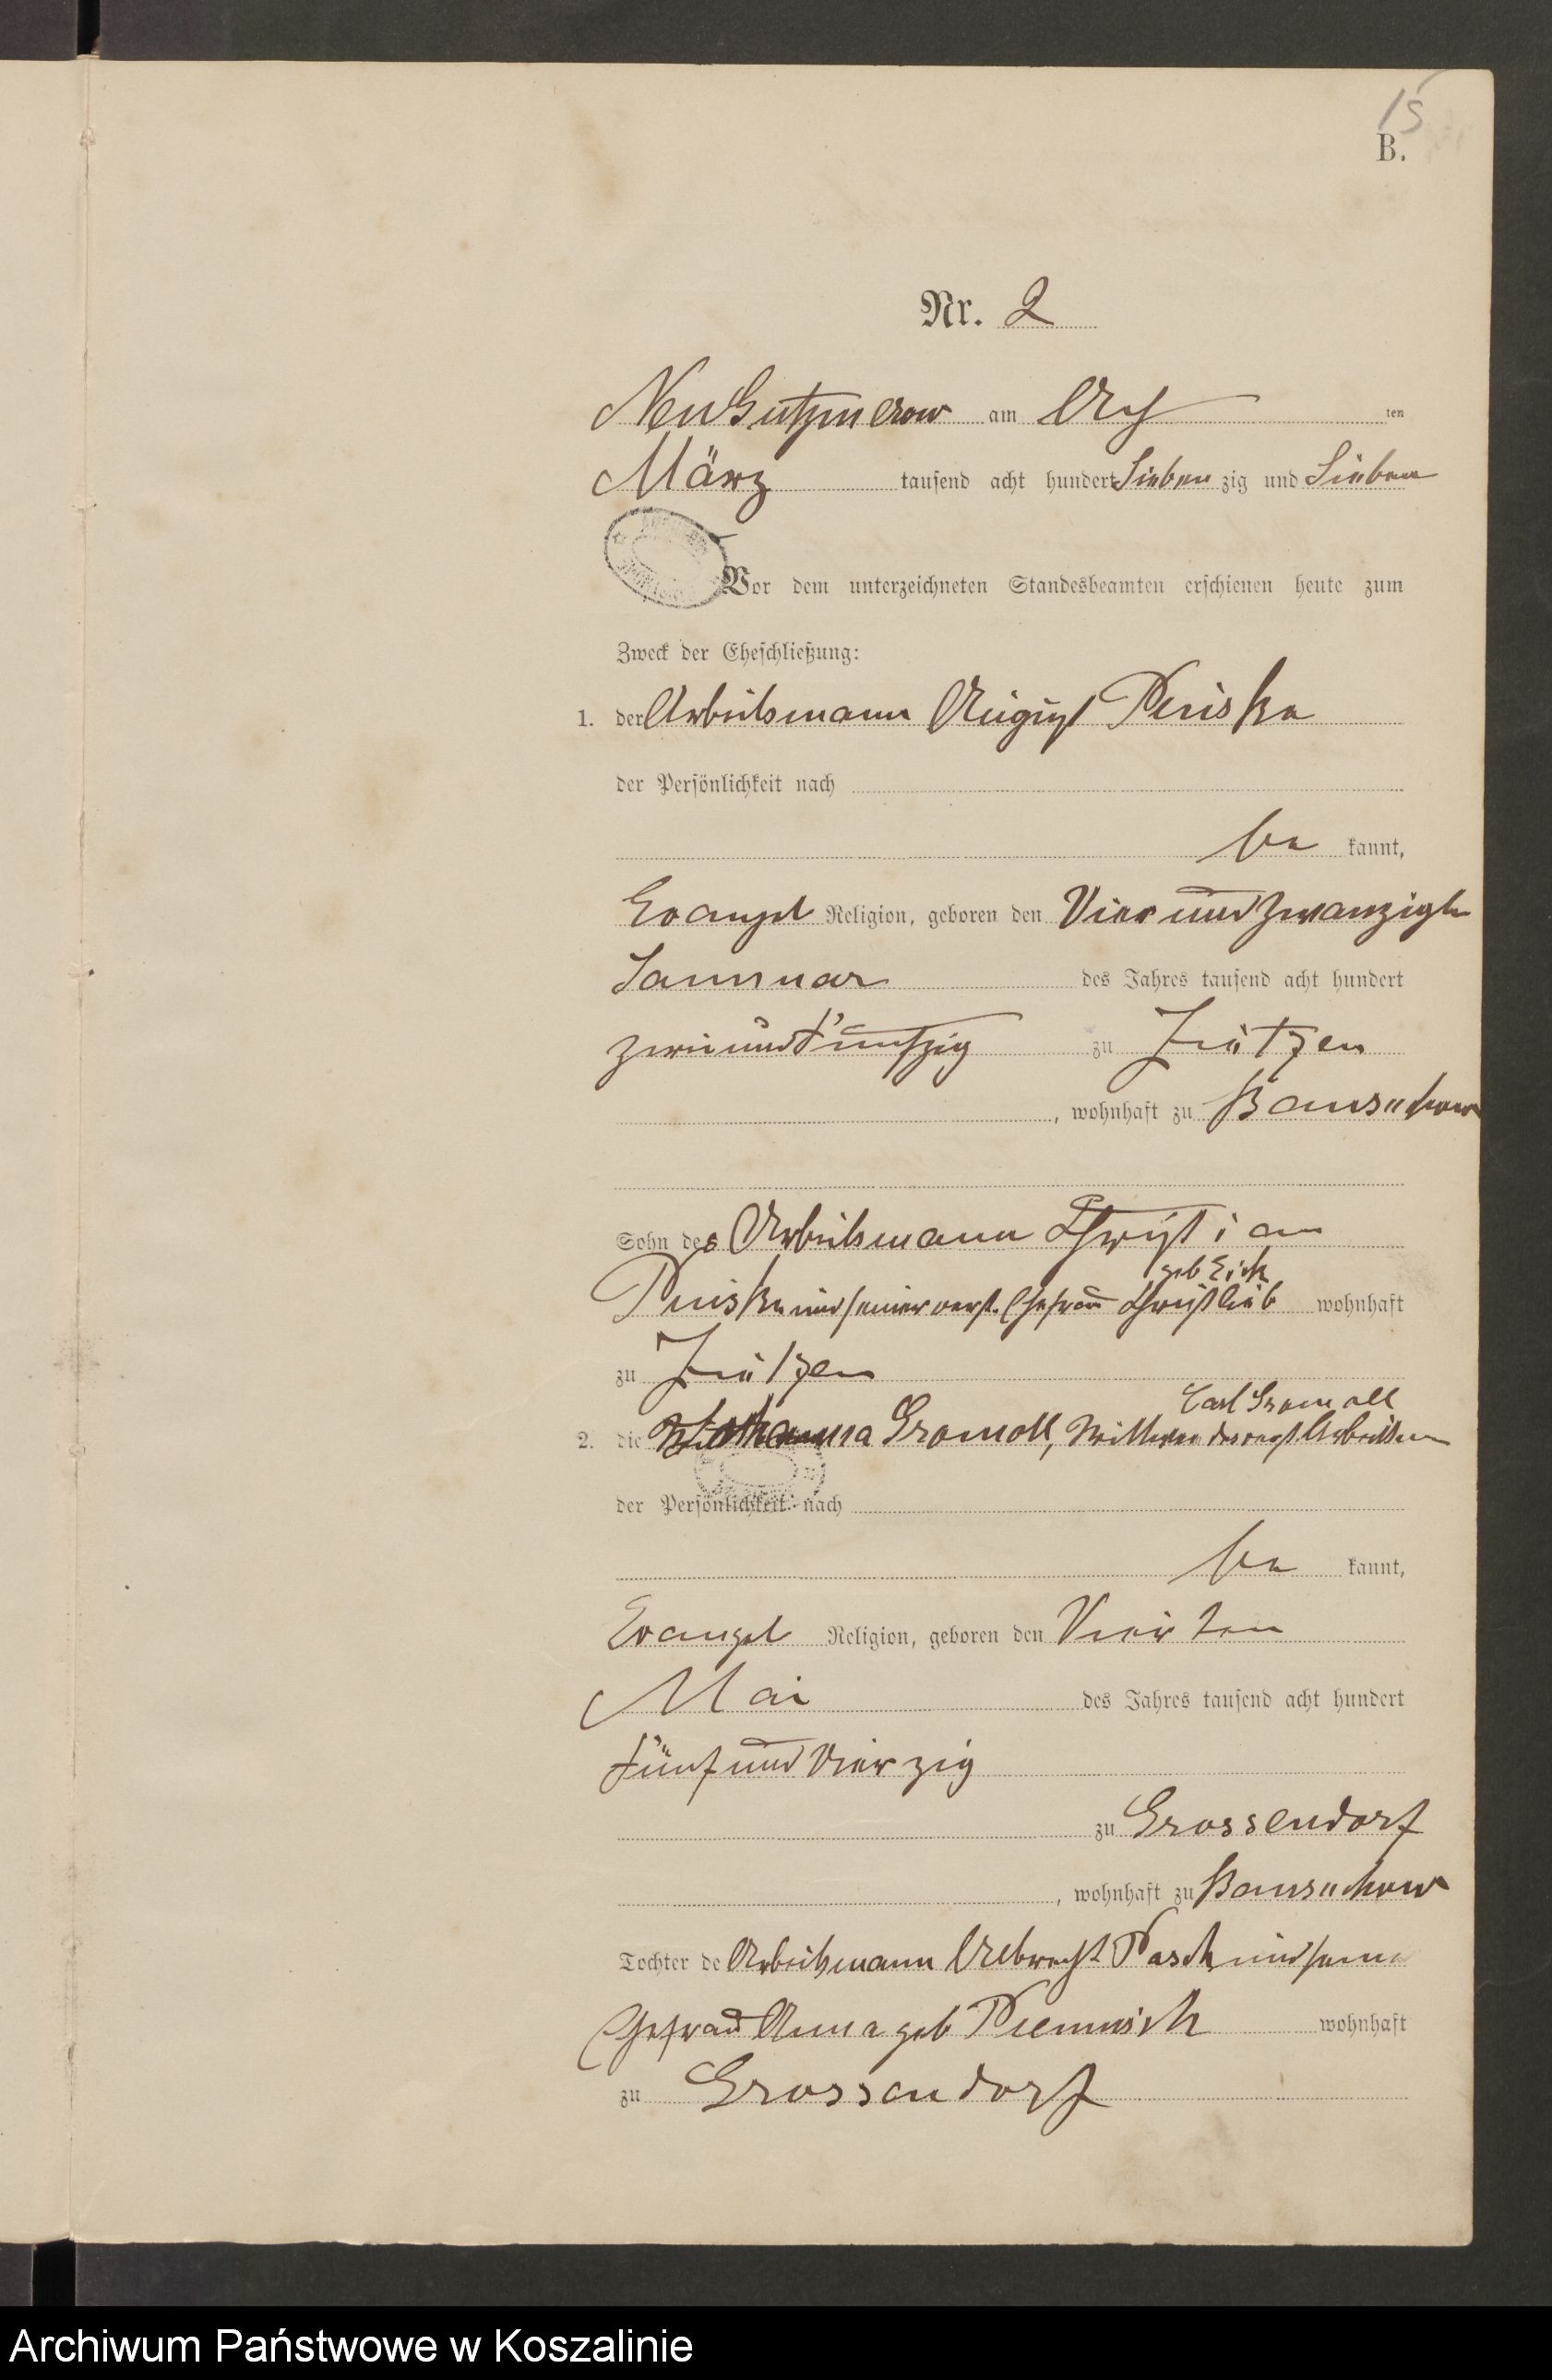 15
B.
Nr. 2
Neu Gutzmerow am Acht ten
März tausend acht hundert Sieben zig und Sieben
Vor dem unterzeichneten Standesbeamten erschienen heute zum
Zweck der Eheschließung:
1. der Arbeitsmann August Peiske
der Persönlichkeit nach
be kannt,
Evangel Religion, geboren den Vier und zwanzigte
Januar des Jahres tausend acht hundert
zwei und Fünfzig zu
, wohnhaft zu Bansekow
Sohn des Arbeitsmann Christian
geb Eick
Peiske und seiner verst. Ehefrau Christlieb wohnhaft
zu
Carl Gromoll
2. die Johanna Gromoll, Wittwe des verst. Arbeitsm
der Persönlichkeit nach
be kannt,
Evangel Religion, geboren den Vierten
Mai des Jahres tausend acht hundert
Fünf und Vierzig
zu Grossendorf
, wohnhaft zu Bansekow
Tochter de Arbeitsmann Albrecht Pasch und seine
Ehefrau Anna geb wohnhaft
zu Grossendorf
Archiwum Państwowe w Koszalinie